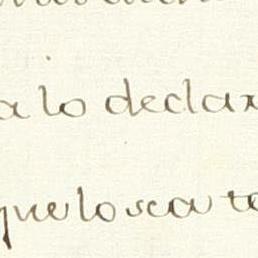 a lo declar
que lo sea te